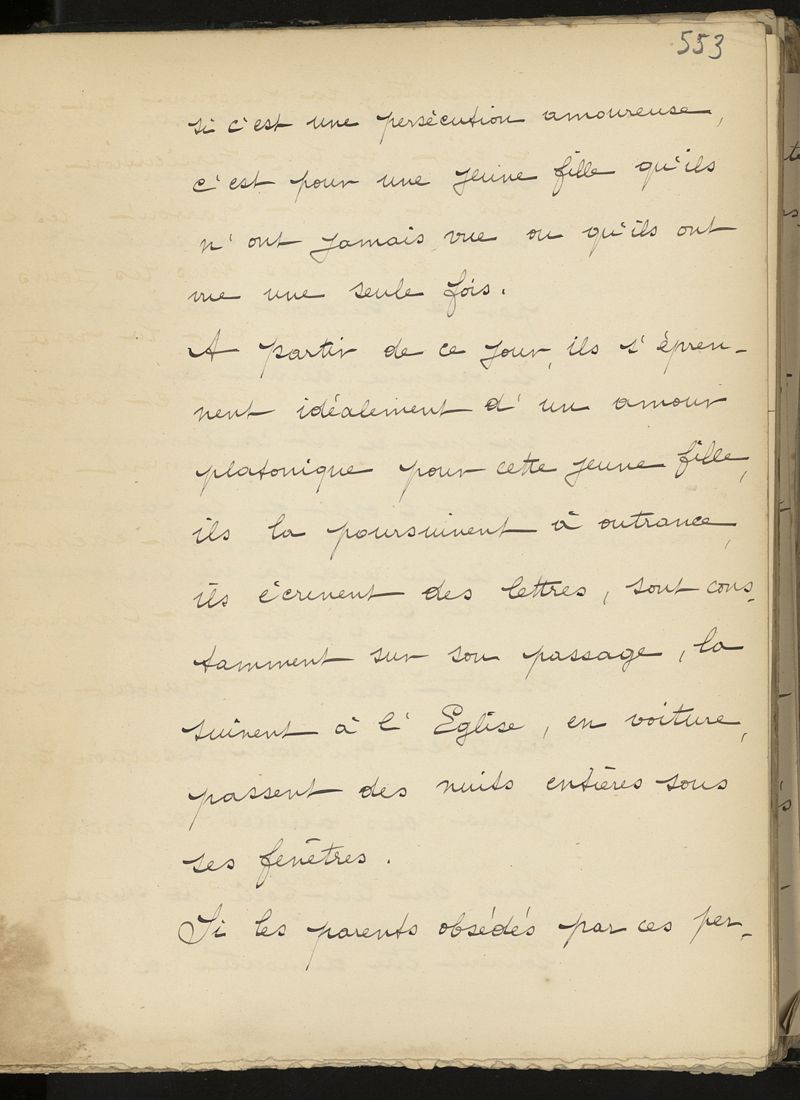 553
si c'est une persécution amoureuse,
c'est pour une jeune fille qu'ils
n'ont jamais vue ou qu'ils ont
vue une seule fois.
A partir de ce jour, ils s'épren-
nent idéalement d'un amour
platonique pour cette jeune fille,
ils la poursuivent à outrance,
ils écrivent des lettres, sont cons-
tamment sur son passage, la
suivent à l'Eglise, en voiture,
passent des nuits entières sous
ses fenêtres.
Si les parents obsédés par ces per-